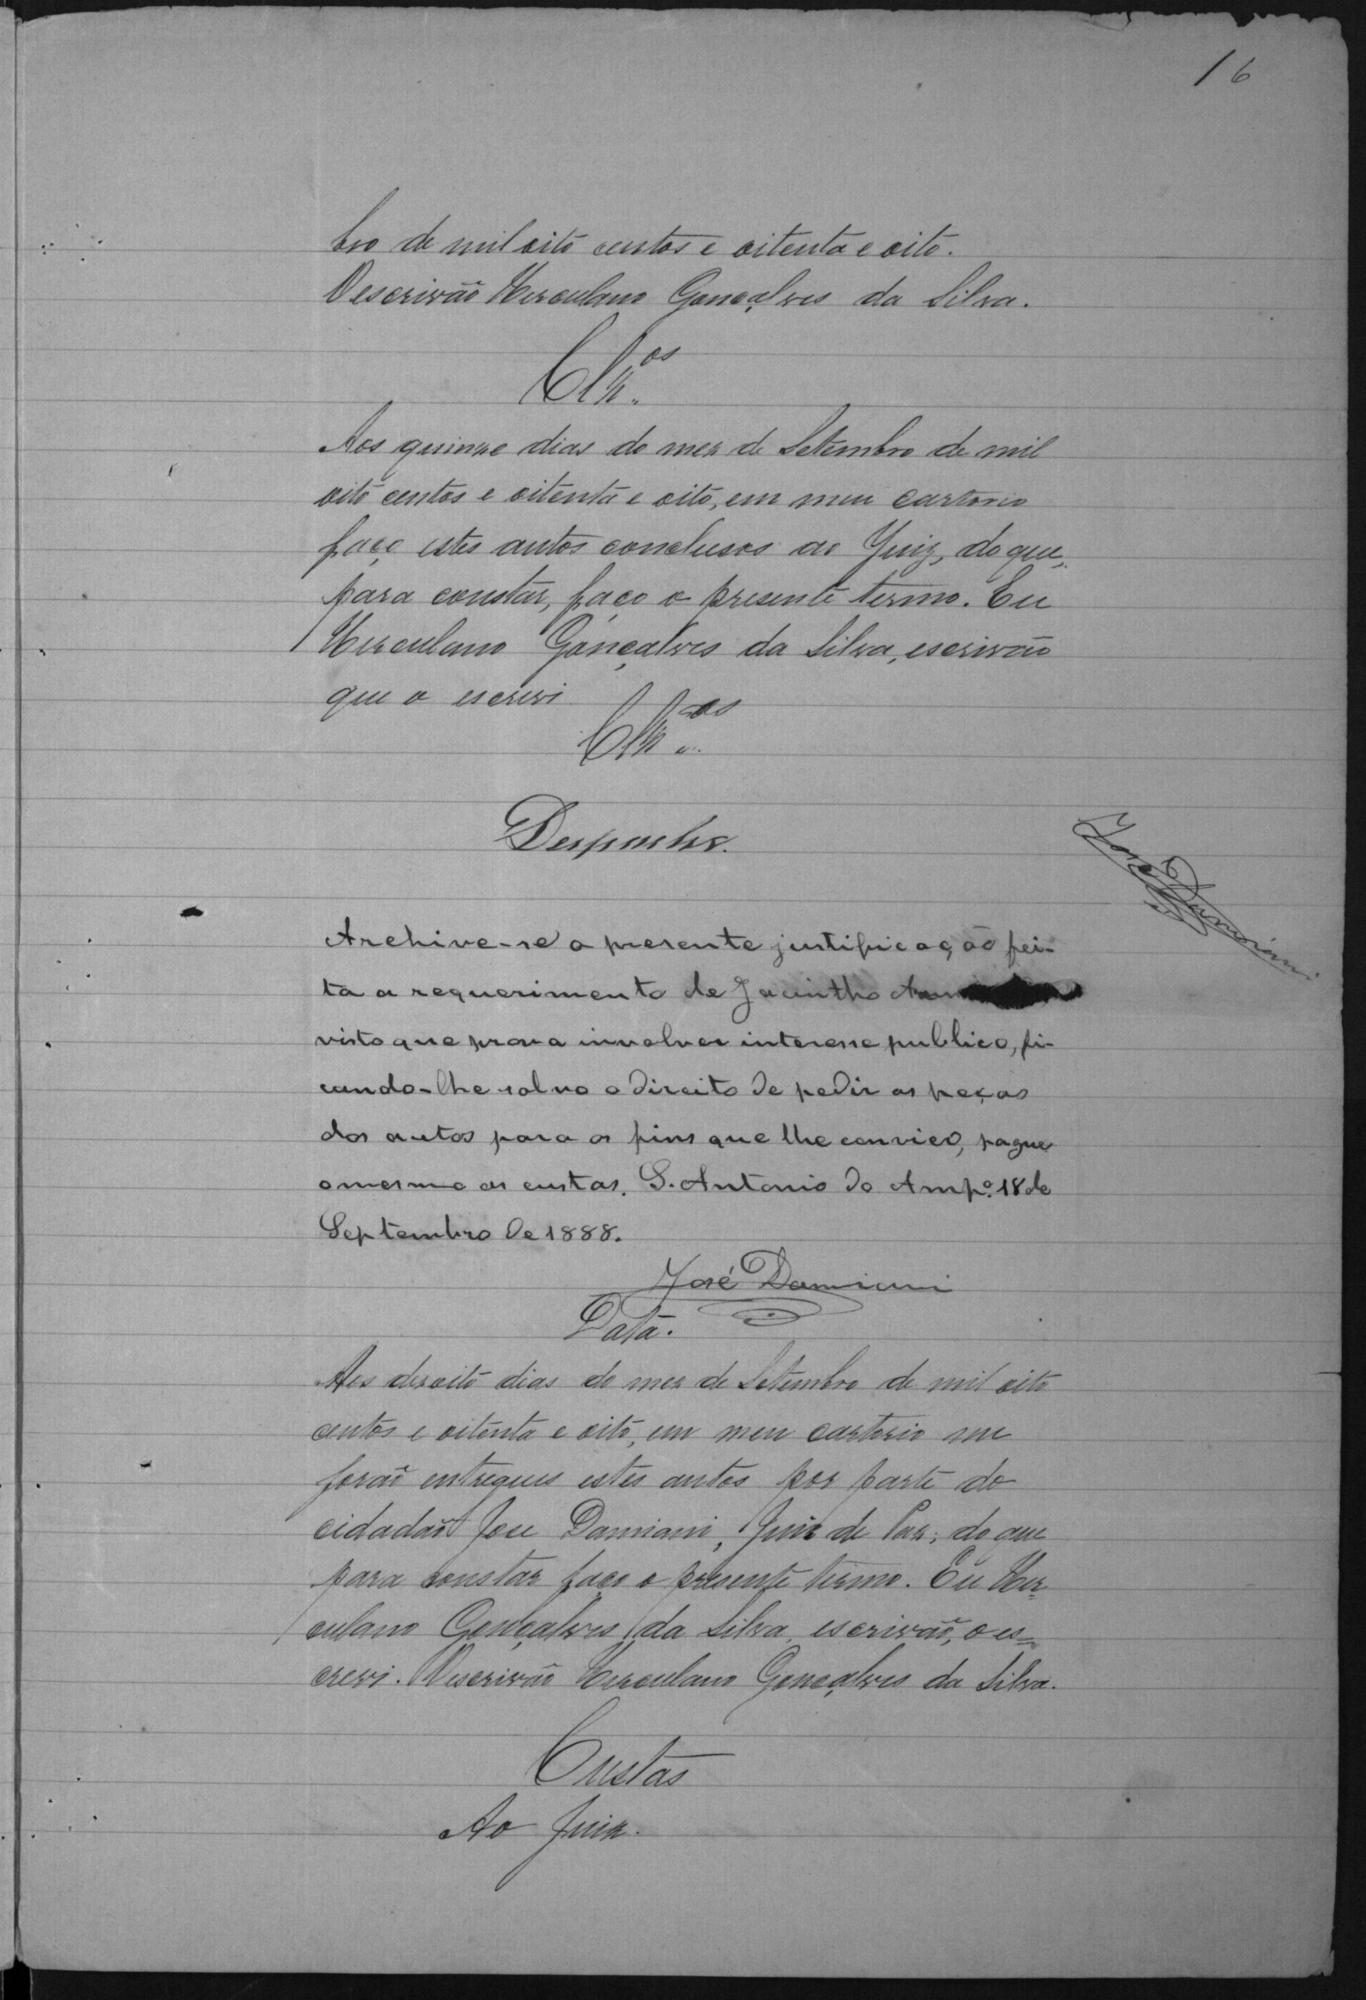 16
bro de mil oito centos e oitenta e oito.
O escrivão Herculano Gonçalves da Silva.
Clsos.
Aos quinze dias do mez de Setembro de mil
oito centos e oitenta e oito, em meu cartorio
faço estes autos conclusos ao Juiz, do que,
para constar, faço o presente termo. Eu
Herculano Gonçalves da Silva, escrivão
que o escrevi
Clsos.
Despacho.
José Damiani
Archive-se a presente justificação fei-
ta a requerimento de Jacintho
visto que prova involver interesse publico, fi-
cando-lhe salvo o direito de pedir as peças
dos autos para os fins que lhe convier, pague
o mesmo as custas. S. Antonio do Ampº. 18 de
Septembro de 1888.
José Damiani
Data.
Aos dezoito dias do mez de Setembro de mil oito
centos e oitenta e oito, em meu cartorio me
forão entregues estes autos por parte do
cidadão Jose Damiani, Juiz de Paz, do que
para constar faço o presente termo. Eu Her-
culano Gonçalves da Silva, escrivão, o es-
crevi. O escrivão Herculano Gonçalves da Silva.
Custas
Ao Juiz.